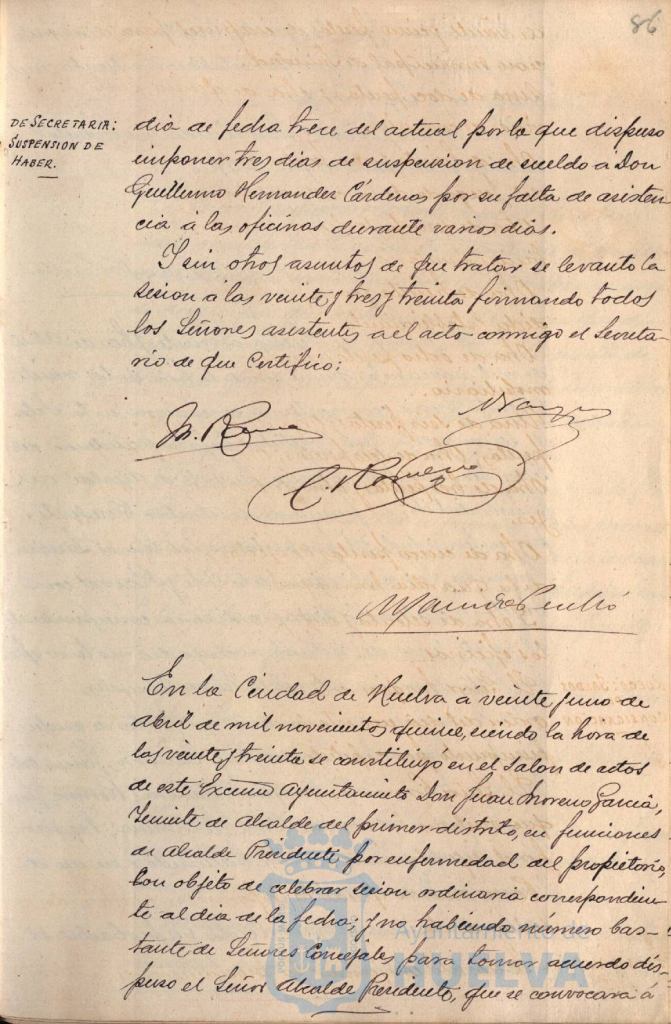 86
DE SECRETARIA:
SUSPENSION DE
HABER.
dia de fecha trece del actual por la que dispuso
imponer tres dias de suspension de sueldo a Don
Guillermo Hernandez Cárdenas por su falta de asisten-
cia á las oficinas durante varios dias.
Y sin otros asuntos de que tratar se levantó la
sesion á las veinte y tres y treinta firmando todos
los Señores asistentes a el acto conmigo el Secreta-
rio de que Certifico:
M.
C. Romero
En la Ciudad de Huelva á veinte y uno de
Abril de mil novecientos quince, siendo la hora de
las veinte y treinta se constituyó en el Salon de actos
de este Excmo Ayuntamiento Don Juan Moreno Garcia,
Teniente de Alcalde del primer distrito, en funciones
de Alcalde Presidente por enfermedad del propietario,
con objeto de celebrar sesion ordinaria correspondien-
te al dia de la fecha; y no habiendo número bas-
tante de Señores Concejales para tomar acuerdo dis-
puso el Señor Alcalde Presidente, que se convocara á
Ayuntamiento de
HUELVA